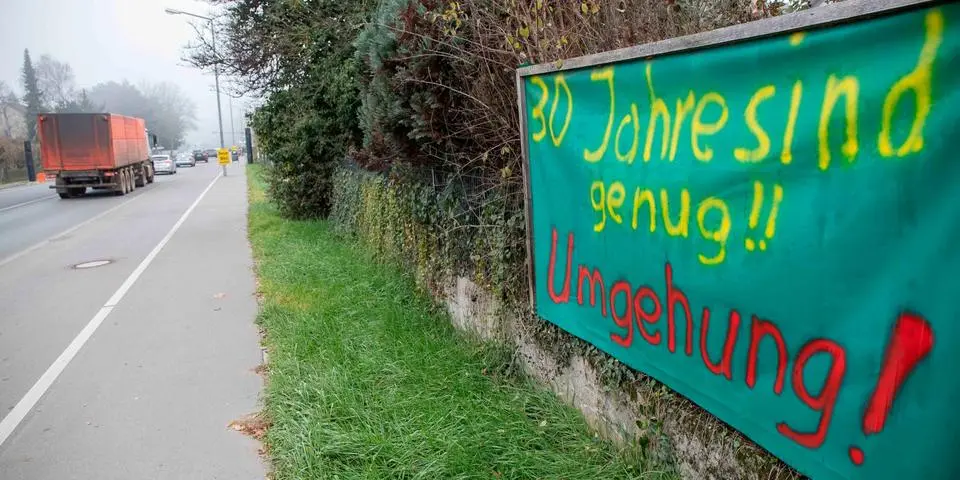 30 Jahre sind
genug!!
Umgehung!